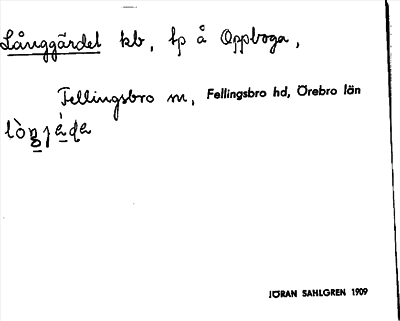 Långgärdet kb, lp å Oppboga,
Fellingsbro m, Fellingsbro hd, Örebro län
JÖRAN SAHLGREN 1909